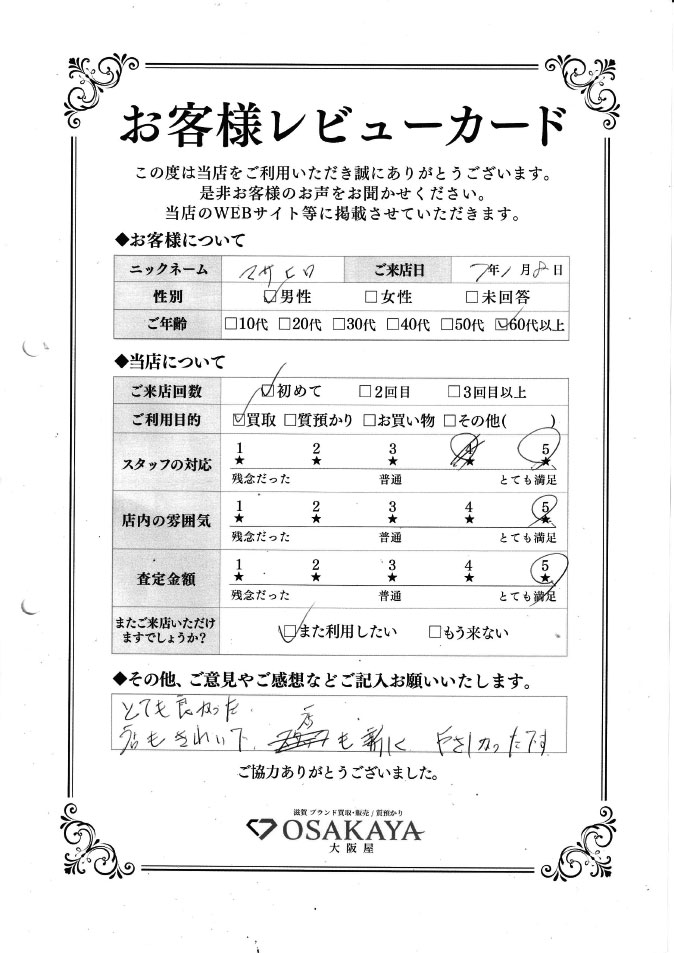 お客様レビューカード
この度は当店をご利用いただき誠にありがとうございます。
是非お客様のお声をお聞かせください。
当店のWEBサイト等に掲載させていただきます。
◆お客様について
ニックネーム マサヒロ ご来店日 7年1月8日
性別 ☑男性 □女性 □未回答
ご年齢 □10代 □20代 □30代 □40代 □50代 ☑60代以上
◆当店について
ご来店回数 ☑初めて □2回目 □3回目以上
ご利用目的 ☑買取 □質預かり □お買い物 □その他( )
スタッフの対応 1 2 3 4 5
★ ★ ★ ★ ★
残念だった 普通 とても満足
店内の雰囲気 1 2 3 4 5
★ ★ ★ ★ ★
残念だった 普通 とても満足
査定金額 1 2 3 4 5
★ ★ ★ ★ ★
残念だった 普通 とても満足
またご来店いただけ
ますでしょうか？ ☑また利用したい □もう来ない
◆その他、ご意見やご感想などご記入お願いいたします。
とても良かった
店もきれいで、店も新しく やさしかったです
ご協力ありがとうございました。
滋賀 ブランド買取・販売 / 質預かり
OSAKAYA
大阪屋